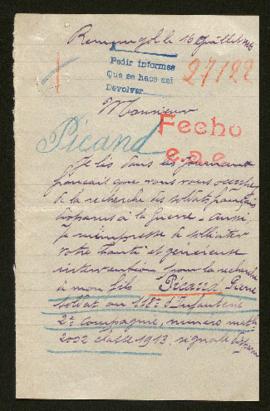 le 16 Juillet
Pedir informes
Que se hace así
Devolver
27122
Monsieur
Picand
Fecho
Je lis dans les journaux
français que vous vous occupez
de la recherche des soldats français
disparus à la guerre. Aussi
je m'empresse de solliciter
votre haute et généreuse
intervention pour la recherche
de mon fils Picand Pierre
soldat au 218e d'Infanterie
2e Compagnie, numéro mle
2002 classe 1913, signalé disparu